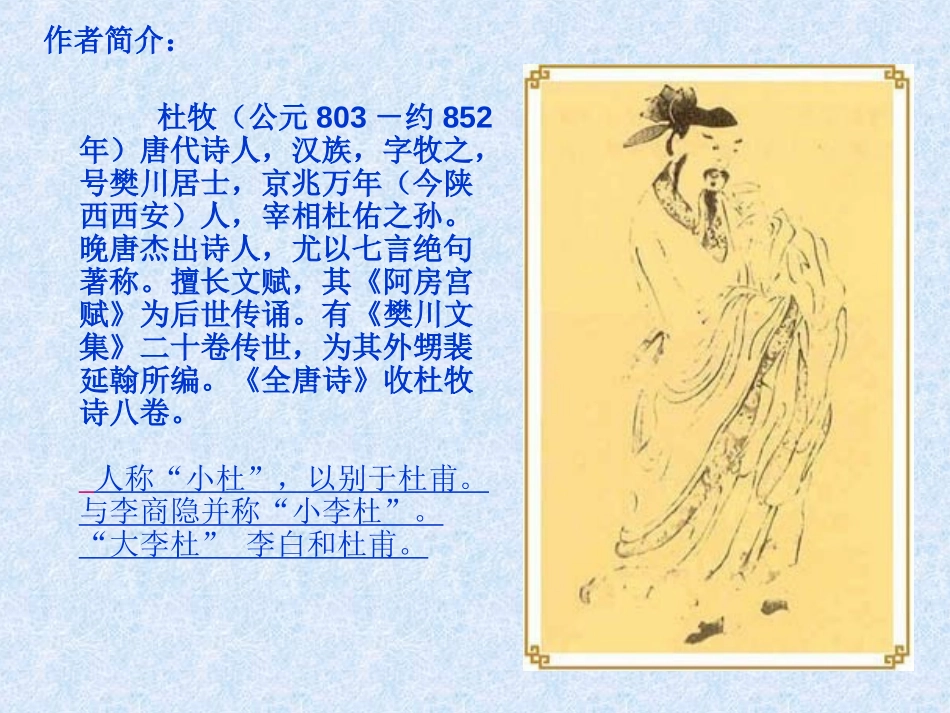 作者简介：
杜牧（公元 803 －约 852
年）唐代诗人，汉族，字牧之，
号樊川居士，京兆万年（今陕
西西安）人，宰相杜佑之孙。
晚唐杰出诗人，尤以七言绝句
著称。擅长文赋，其《阿房宫
赋》为后世传诵。有《樊川文
集》二十卷传世，为其外甥裴
延翰所编。《全唐诗》收杜牧
诗八卷。
人称“小杜”，以别于杜甫。
与李商隐并称“小李杜”。
“大李杜” 李白和杜甫。